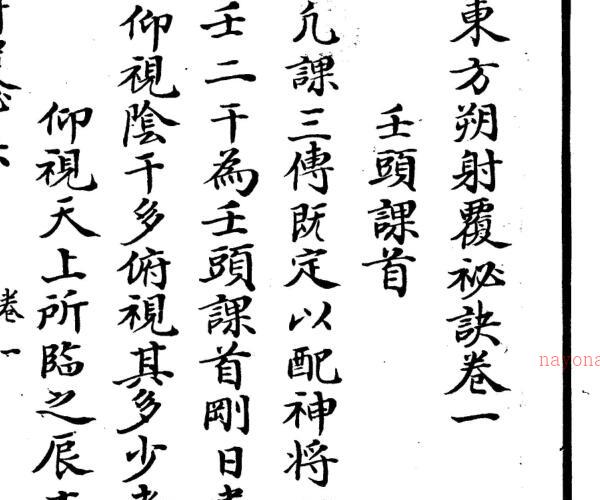 東方朔射覆祕訣卷一
壬頭課首
凢課三傳既定以配神将
壬二干為壬頭課首剛日
仰視陰干多俯視其多少
仰視天上所臨之辰
卷一
nayona